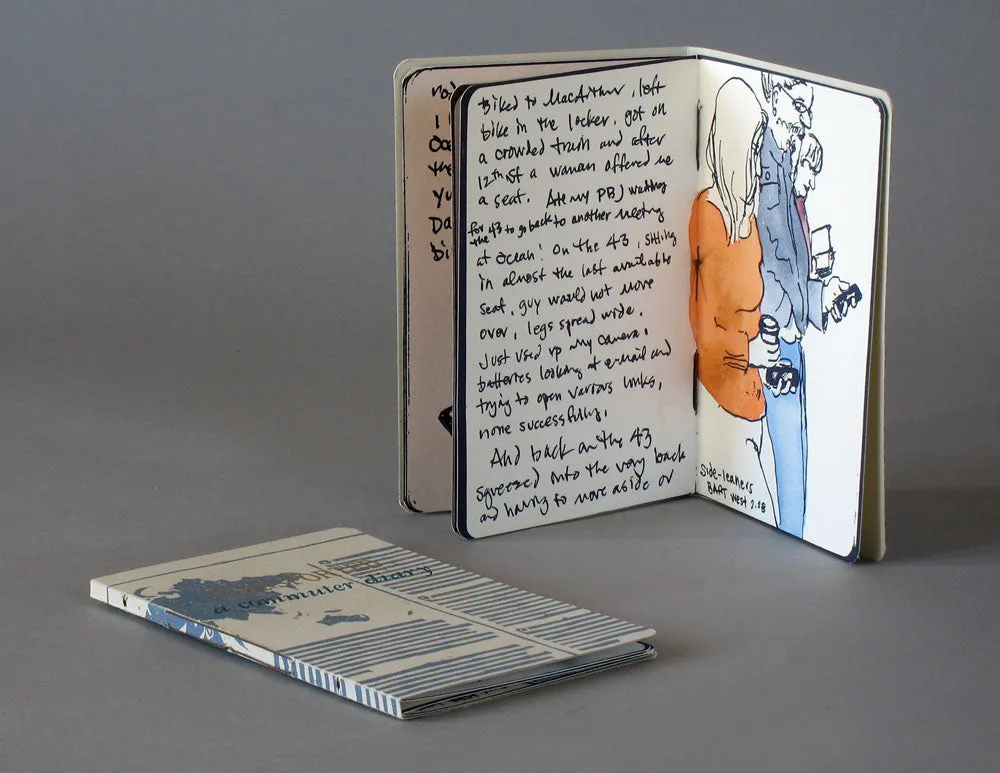 Biked to MacArthur, left
bike in the locker, got on
a crowded train and after
12th st a woman offered me
a seat. Ate my PBJ waiting
for the 43 to go back to another meeting
at Ocean! On the 43, sitting
in almost the last available
seat, guy would not move
over, legs spread wide.
Just used up my camera
batteries looking at e-mail and
trying to open various links,
none successfully.
And back on the 43
squeezed into the very back
and having to move aside or
Side-leaners
BART West 2.28
a commuter diary